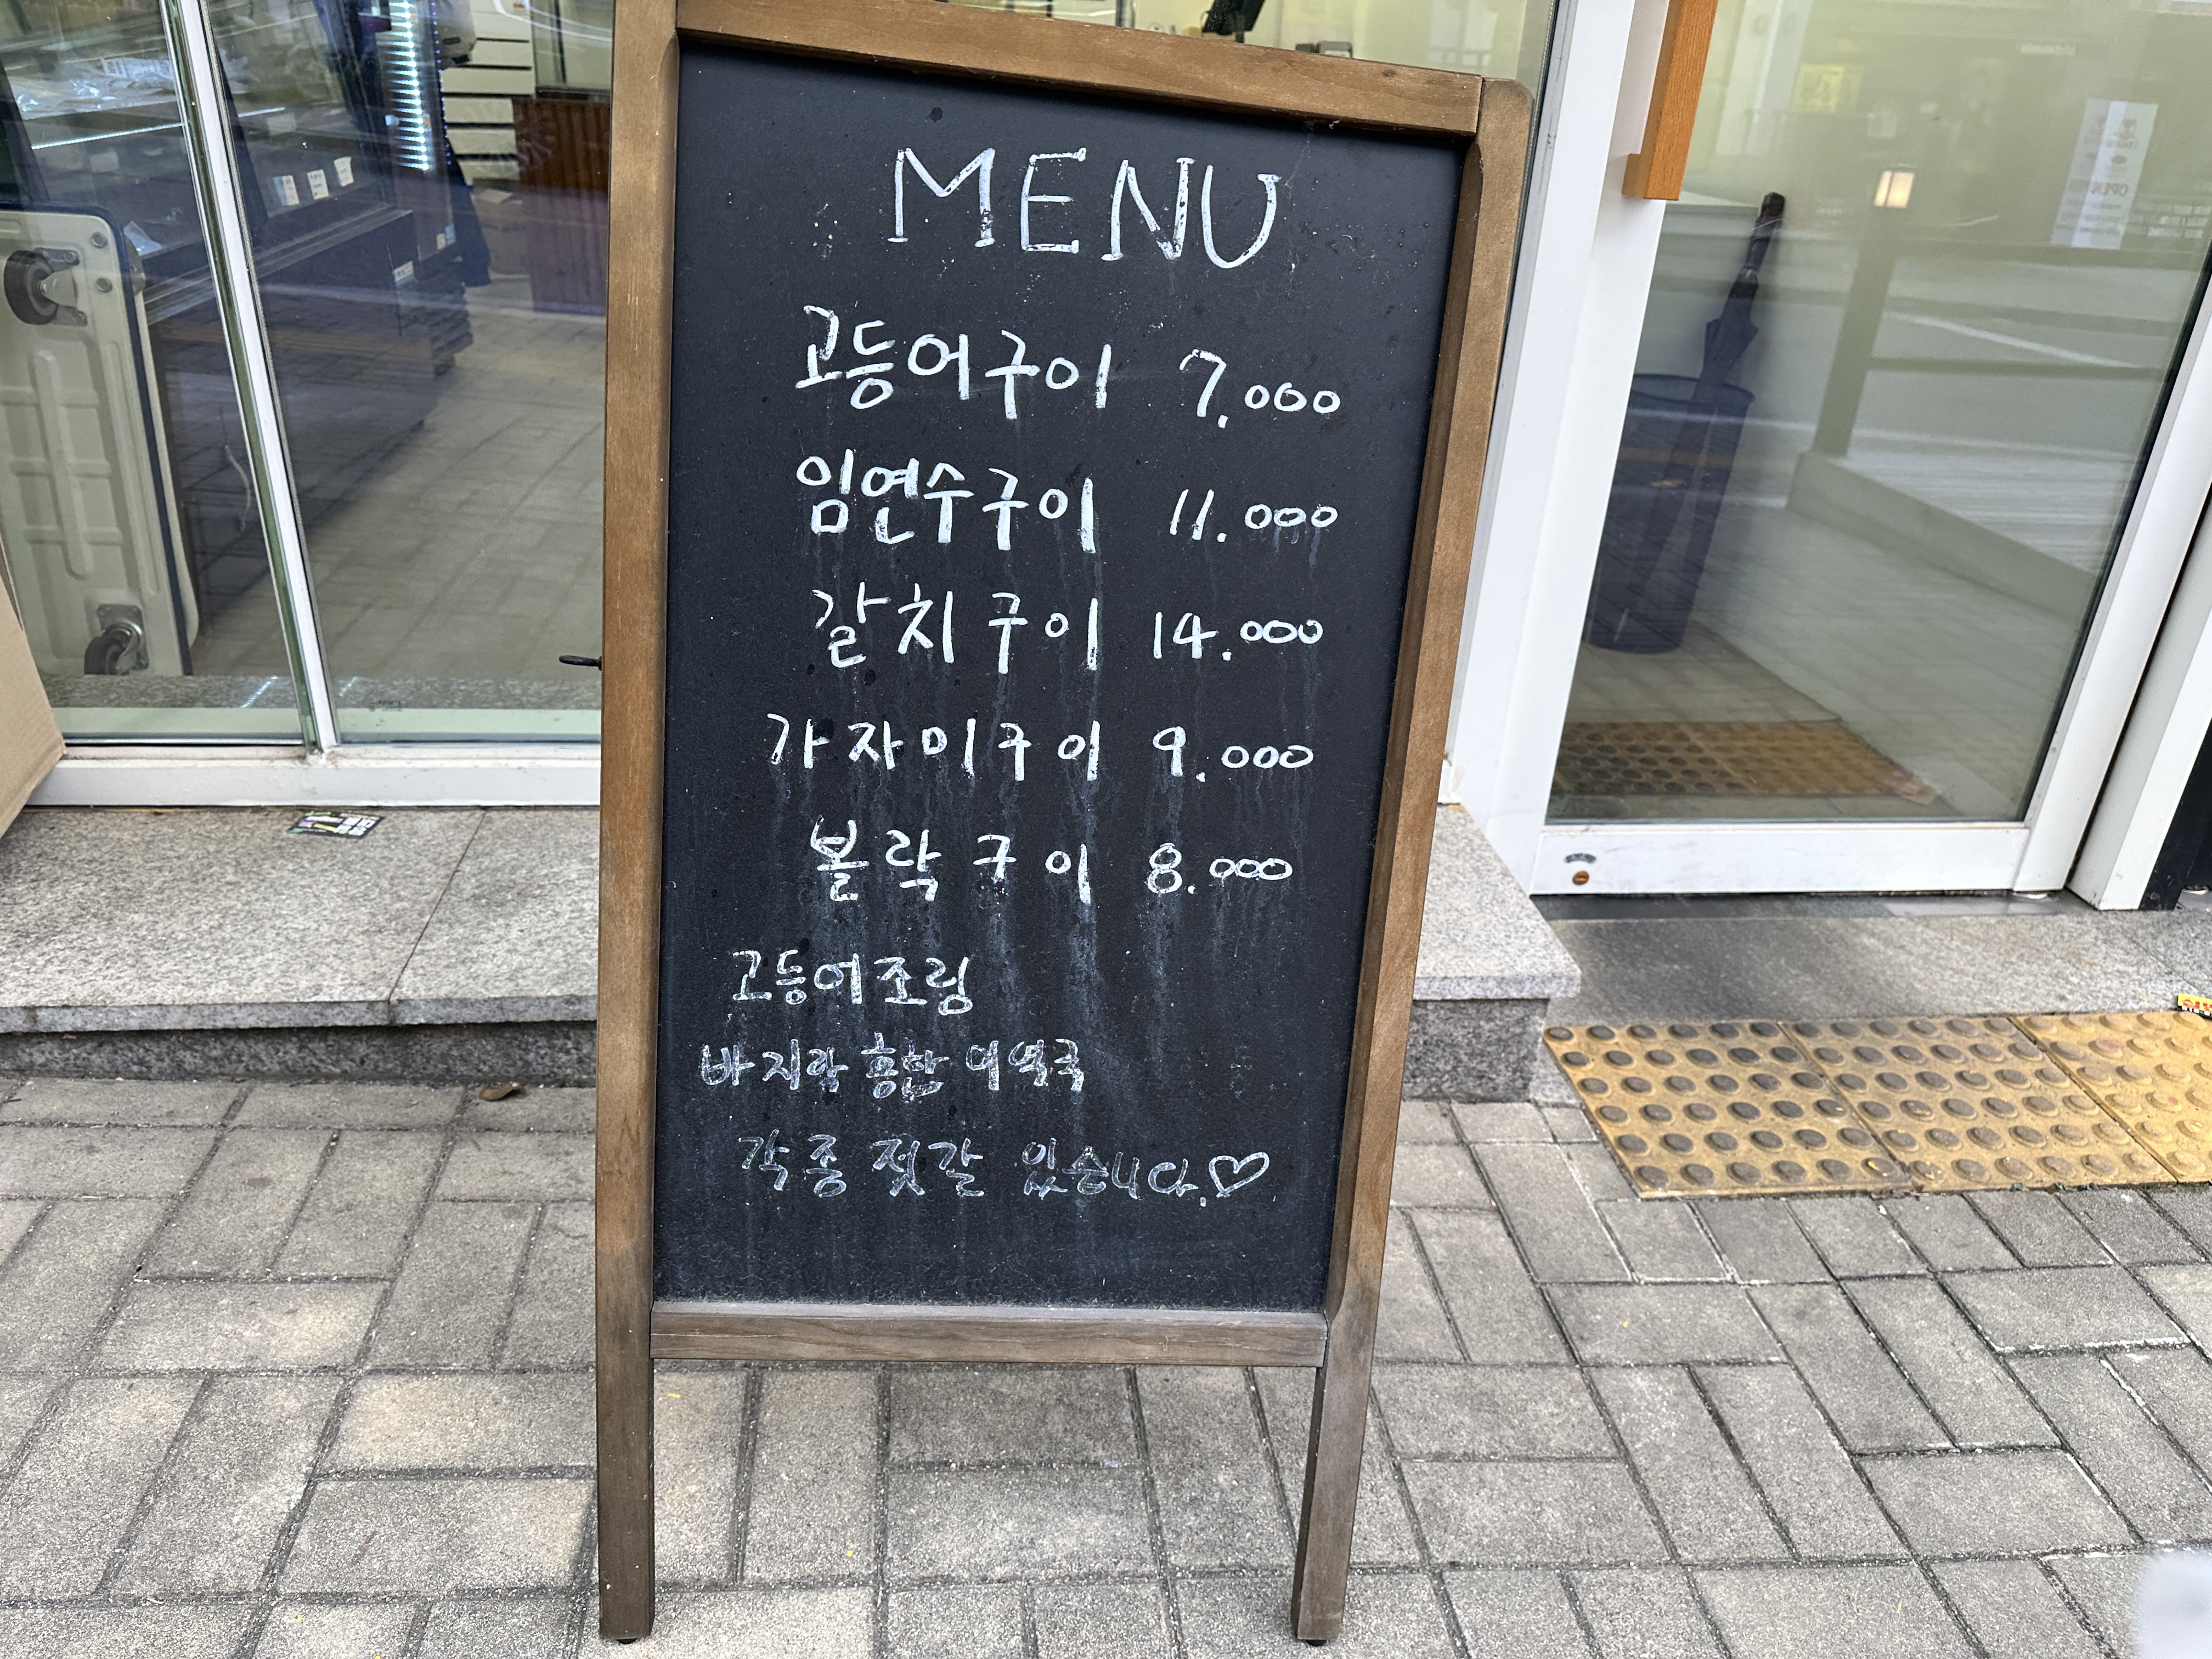 MENU
고등어구이 7.000
임연수구이 11.000
갈치구이 14.000
가자미구이 9.000
볼락구이 8.000
고등어조림
바지락 홍합 미역국
각종 젓갈 있습니다.♡